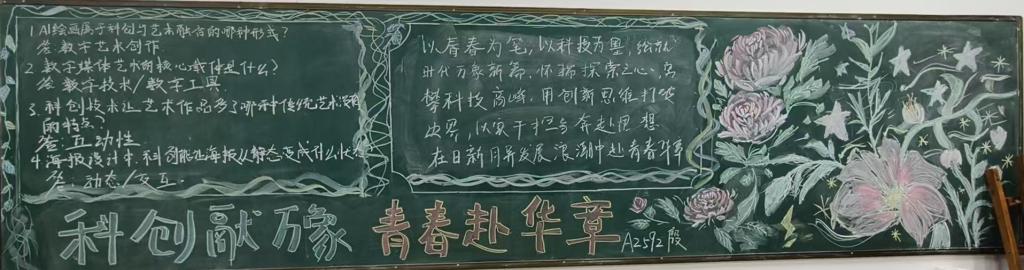 1 AI绘画属于科创与艺术融合的哪种形式?
答 数字艺术创作
2. 数字媒体艺术的核心载体是什么?
答 数字技术/数字工具
3. 科创技术让艺术作品多了哪种传统艺术没有
的特点、
答: 互动性
4. 海报设计中, 科创能让海报从静态变成什么状态
答 动态/交互.
以青春为笔, 以科技为墨, 绘就
时代万象新篇, 怀揣探索之心、勇
攀科技高峰. 用创新思维打破
边界, 以实干担当奔赴理想
在日新月异发展浪潮中赴青春华章
科创献万象 青春赴华章 A2592段